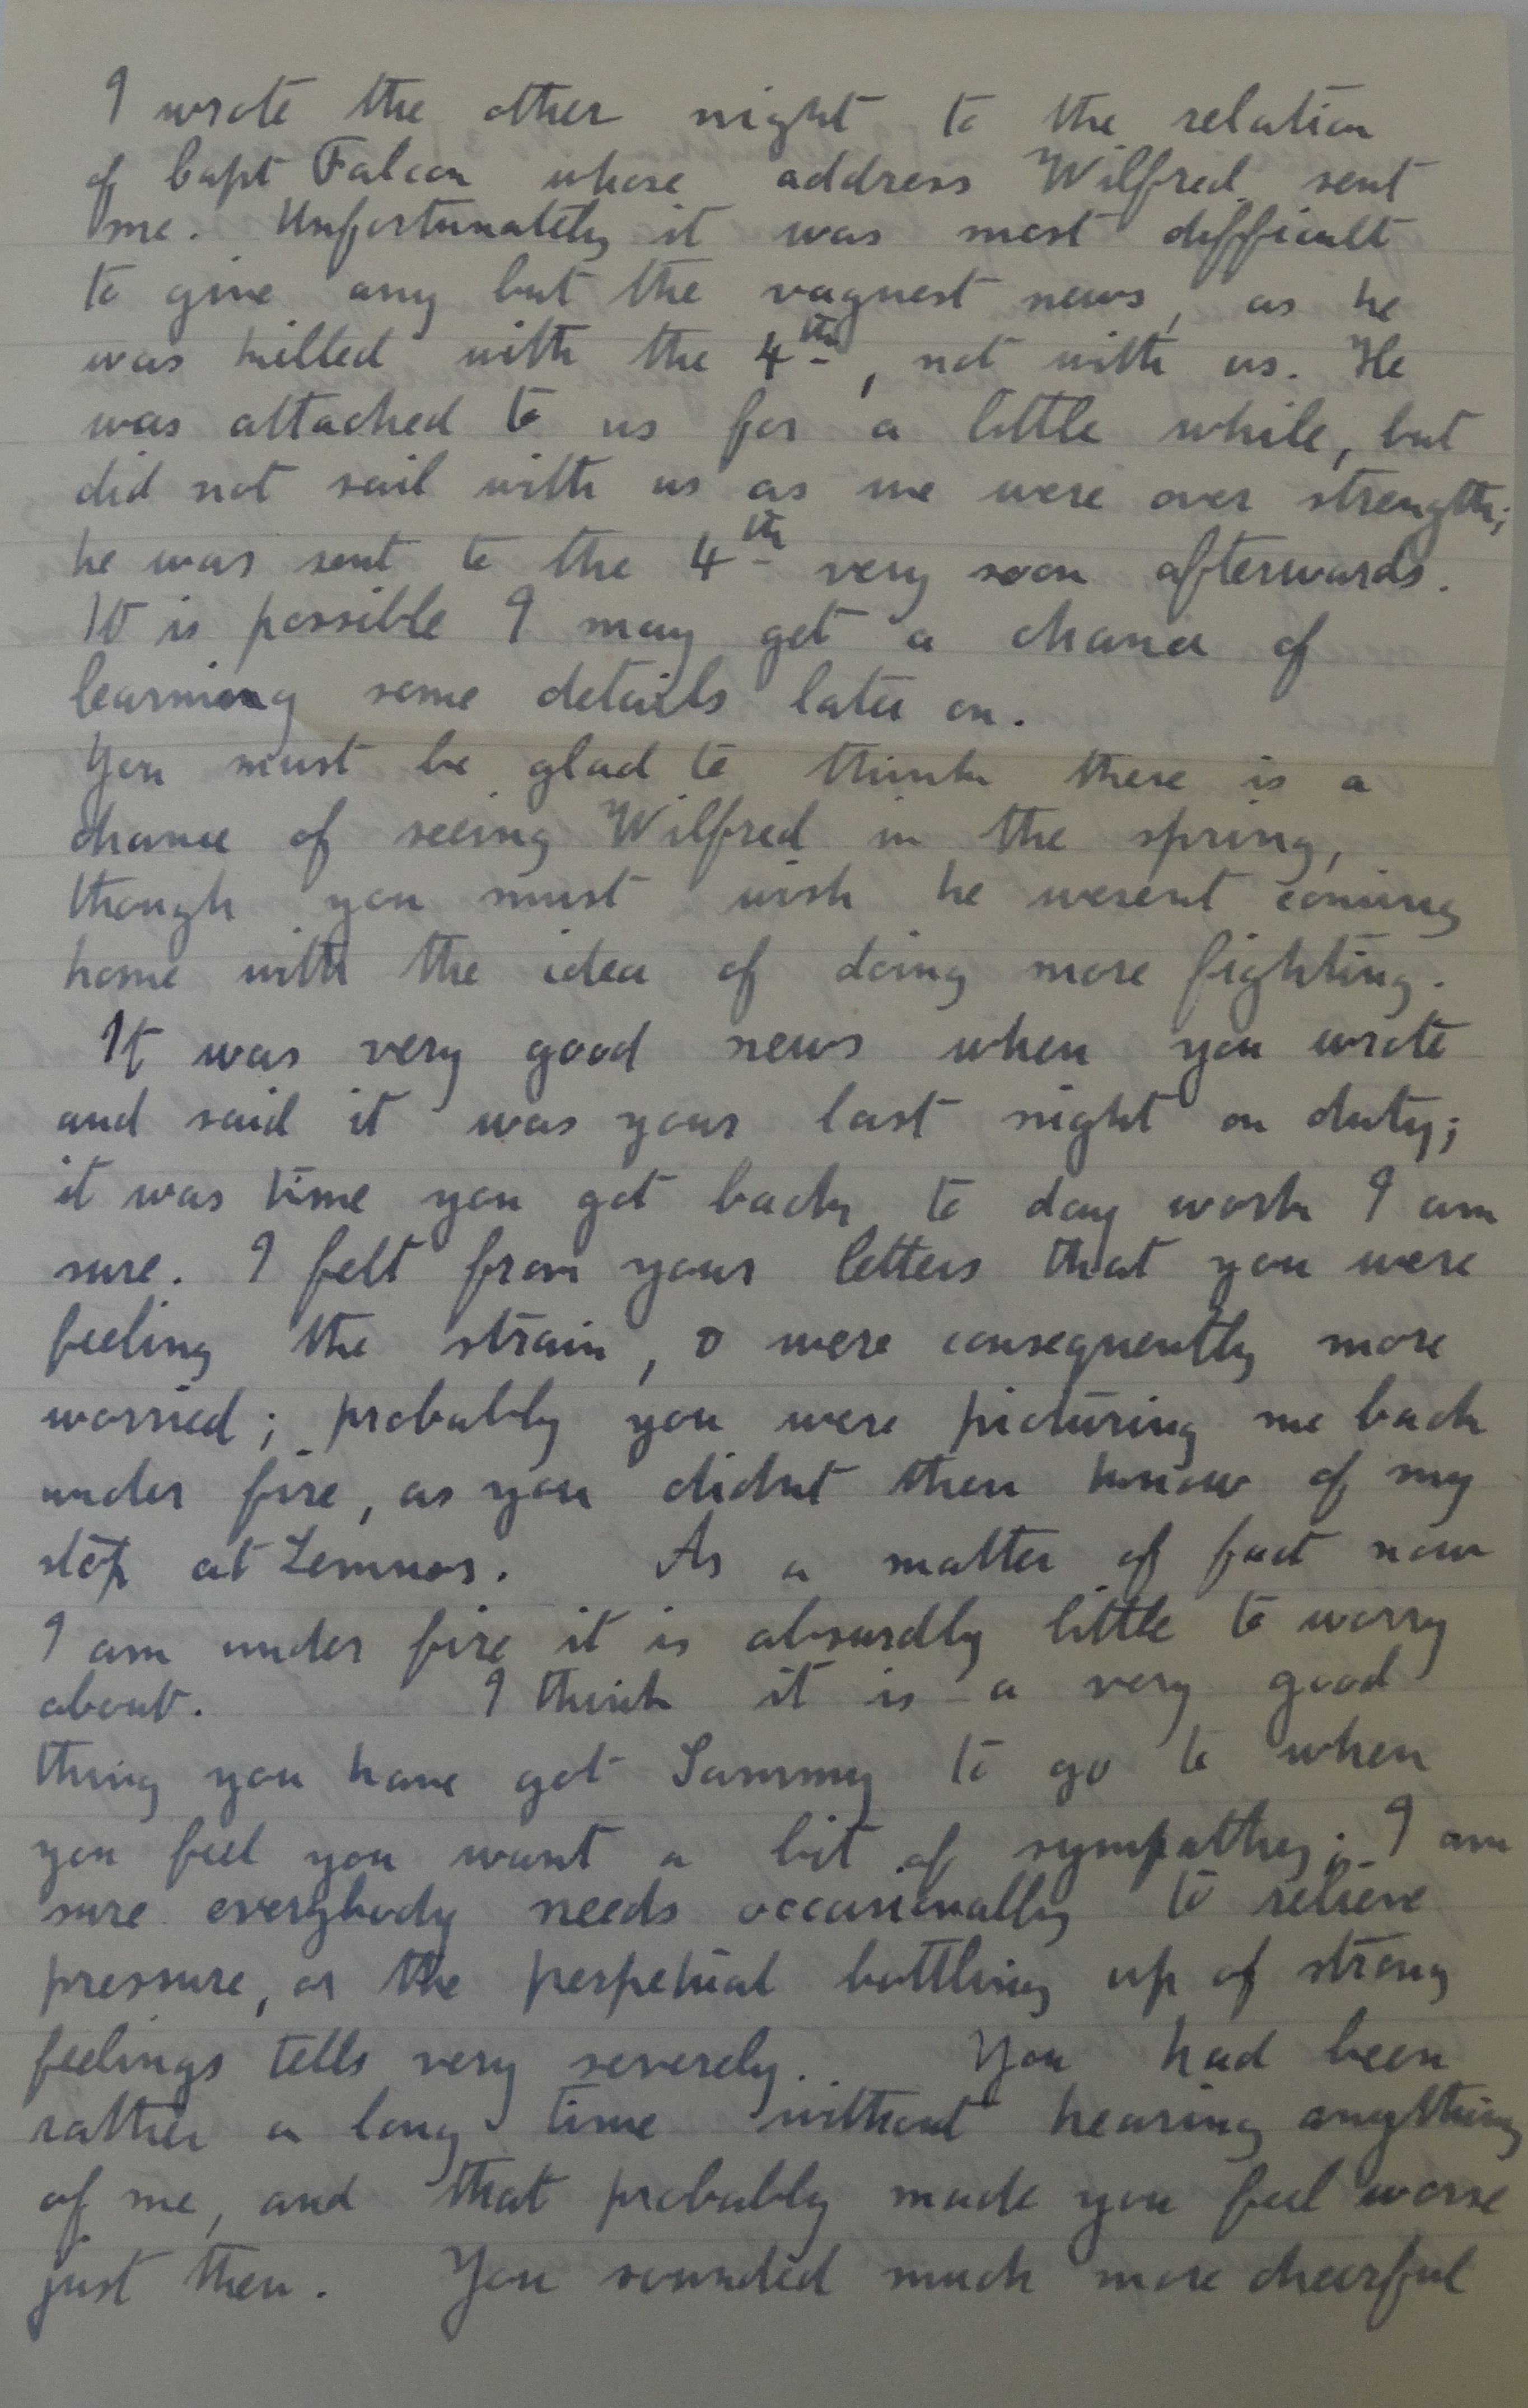 I wrote the other night to the relation
of Capt Falcon whose address Wilfred sent
me. Unfortunately it was most difficult
to give any but the vaguest news, as he
was killed with the 4th, not with us. He
was attached to us for a little while, but
did not sail with us as we were over strength;
he was sent to the 4th very soon afterwards.
It is possible I may get a chance of
learning some details later on.
You must be glad to think there is a
chance of seeing Wilfred in the spring,
though you must wish he werent coming
home with the idea of doing more fighting.
It was very good news when you wrote
and said it was your last night on duty;
it was time you got back to day work I am
sure. I felt from your letters that you were
feeling the strain, & were consequently more
worried; probably you were picturing me back
under fire, as you didnt then know of my
stop at Lemnos. As a matter of fact now
I am under fire it is absurdly little to worry
about. I think it is a very good
thing you have got Sammy to go to when
you feel you want a bit of sympathy; I am
sure everybody needs occasionally to relieve
pressure, or the perpetual bottling up of strong
feelings tells very severely. You had been
rather a long time without hearing anything
of me, and that probably made you feel worse
just then. You sounded much more cheerful